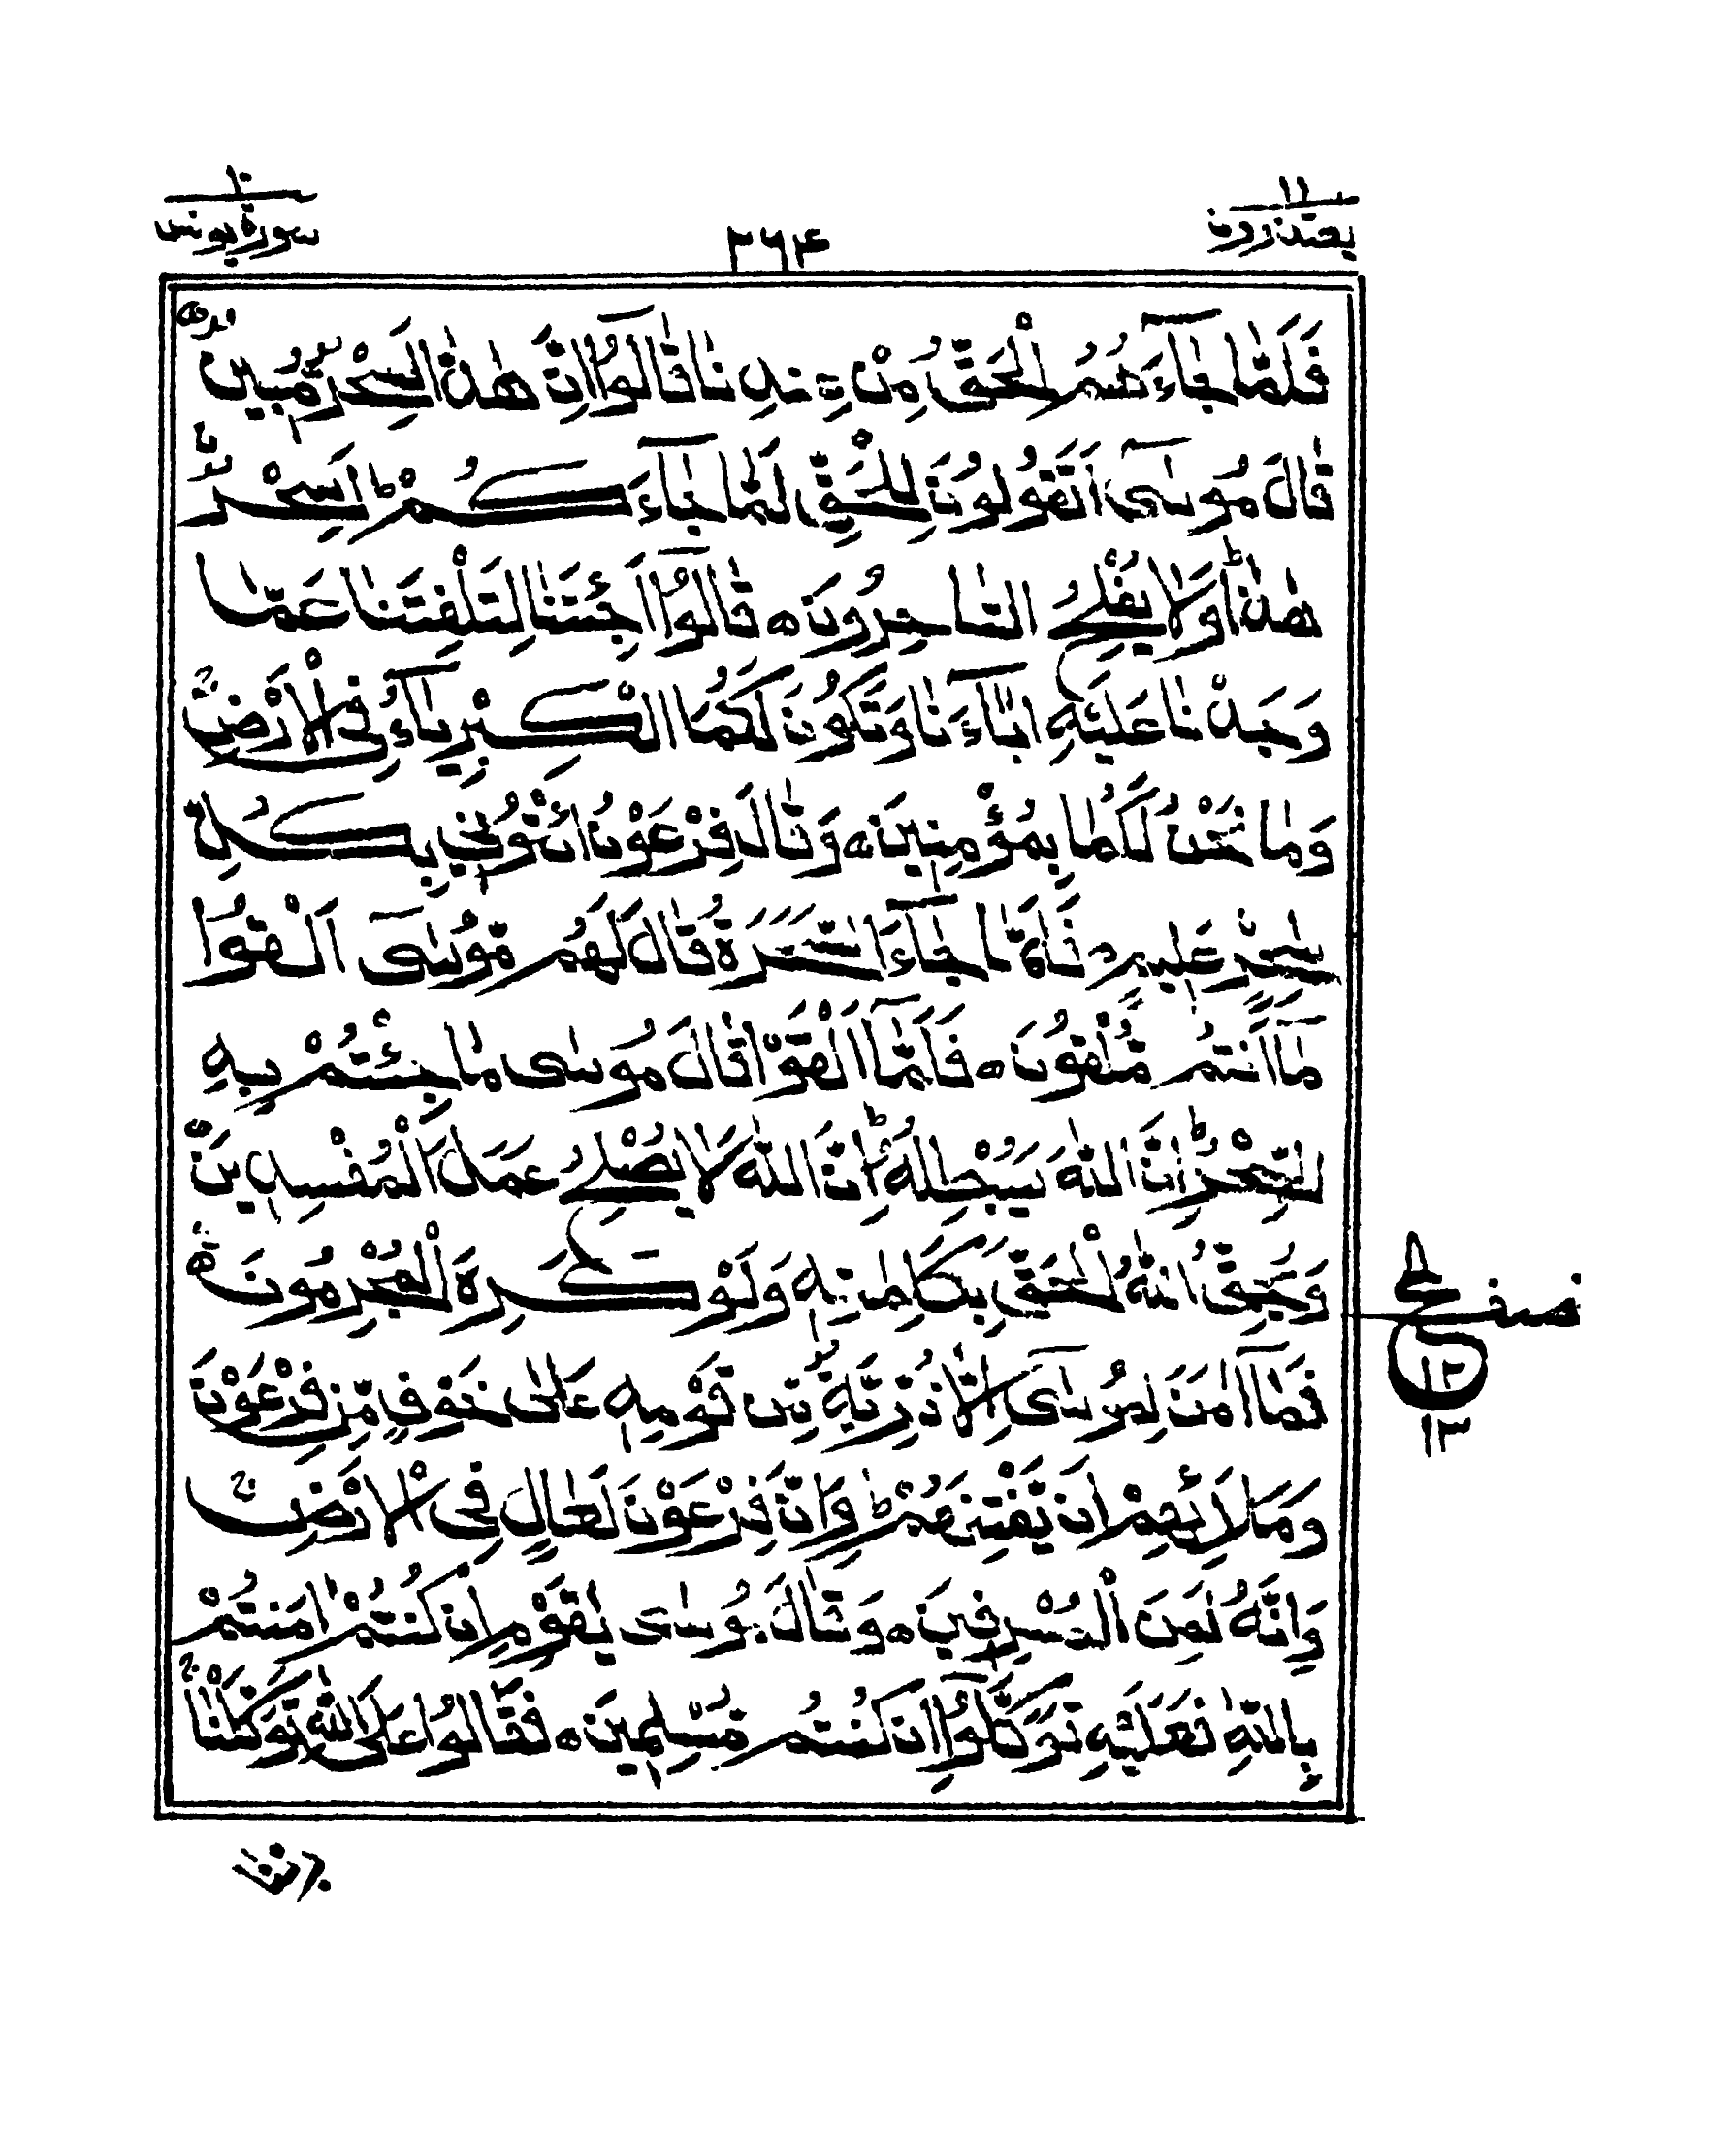 یعتذرون ۱۱
۲۶۴
سورة یونس ۱۰
فَلَمَّا جَآءَهُمُ الْحَقُّ مِنْ عِنْدِنَا قَالُوْٓا اِنَّ هٰذَا لَسِحْرٌ مُّبِیْنٌ
قَالَ مُوْسٰٓی اَتَقُوْلُوْنَ لِلْحَقِّ لَمَّا جَآءَكُمْ ؕ اَسِحْرٌ
هٰذَا ؕ وَلَا یُفْلِحُ السّٰحِرُوْنَ ۝ قَالُوْٓا اَجِئْتَنَا لِتَلْفِتَنَا عَمَّا
وَجَدْنَا عَلَیْهِ اٰبَآءَنَا وَتَكُوْنَ لَكُمَا الْكِبْرِیَآءُ فِی الْاَرْضِ ؕ
وَمَا نَحْنُ لَكُمَا بِمُؤْمِنِیْنَ ۝ وَقَالَ فِرْعَوْنُ ائْتُوْنِیْ بِكُلِّ
سٰحِرٍ عَلِیْمٍ ۝ فَلَمَّا جَآءَ السَّحَرَةُ قَالَ لَهُمْ مُّوْسٰٓی اَلْقُوْا
مَآ اَنْتُمْ مُّلْقُوْنَ ۝ فَلَمَّآ اَلْقَوْا قَالَ مُوْسٰی مَا جِئْتُمْ بِهِ
السِّحْرُ ؕ اِنَّ اللّٰهَ سَیُبْطِلُهٗ ؕ اِنَّ اللّٰهَ لَا یُصْلِحُ عَمَلَ الْمُفْسِدِیْنَ
وَیُحِقُّ اللّٰهُ الْحَقَّ بِكَلِمٰتِهٖ وَلَوْ كَرِهَ الْمُجْرِمُوْنَ
فَمَآ اٰمَنَ لِمُوْسٰٓی اِلَّا ذُرِّیَّةٌ مِّنْ قَوْمِهٖ عَلٰی خَوْفٍ مِّنْ فِرْعَوْنَ
وَمَلَا۟ئِهِمْ اَنْ یَّفْتِنَهُمْ ؕ وَاِنَّ فِرْعَوْنَ لَعَالٍ فِی الْاَرْضِ ۚ
وَاِنَّهٗ لَمِنَ الْمُسْرِفِیْنَ ۝ وَقَالَ مُوْسٰی یٰقَوْمِ اِنْ كُنْتُمْ اٰمَنْتُمْ
بِاللّٰهِ فَعَلَیْهِ تَوَكَّلُوْٓا اِنْ كُنْتُمْ مُّسْلِمِیْنَ ۝ فَقَالُوْا عَلَی اللّٰهِ تَوَكَّلْنَا ۚ
ع
۱۲
۱۳